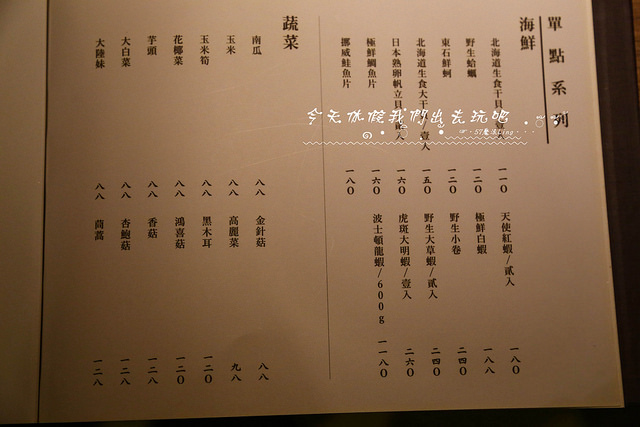 單點系列
海鮮
北海道生食干貝/壹入 一一〇
野生蛤蠣 一二〇
東石鮮蚵 一二〇
北海道生食大干貝/壹入 一五〇
日本熟卵帆立貝/貳入 一六〇
極鮮鯛魚片 一六〇
挪威鮭魚片 一八〇
天使紅蝦/貳入 一八〇
極鮮白蝦 一八八
野生小卷 二四〇
野生大草蝦/貳入 二四〇
虎斑大明蝦/壹入 二六〇
波士頓龍蝦/600g 一一八〇
蔬菜
南瓜 八八
玉米 八八
玉米筍 八八
花椰菜 八八
芋頭 八八
大白菜 八八
大陸妹 八八
金針菇 八八
高麗菜 九八
黑木耳 一二〇
鴻喜菇 一二〇
香菇 一二八
杏鮑菇 一二八
茼蒿 一二八
今天休假我們出去玩吧